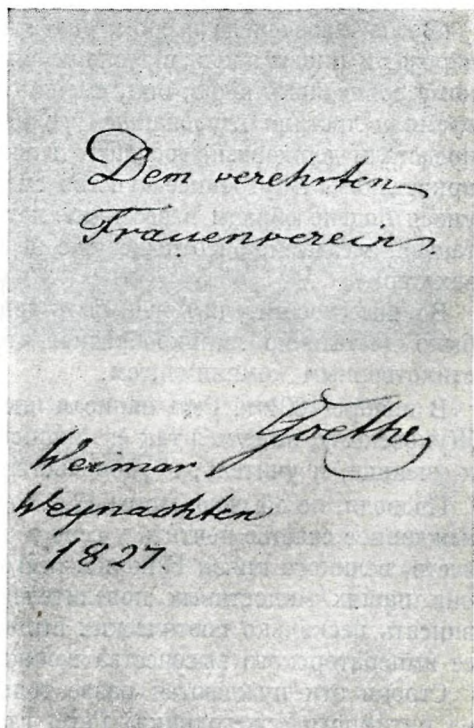 Dem verehrten
Frauenverein.
Goethe
Weimar
Weynachten
1827.